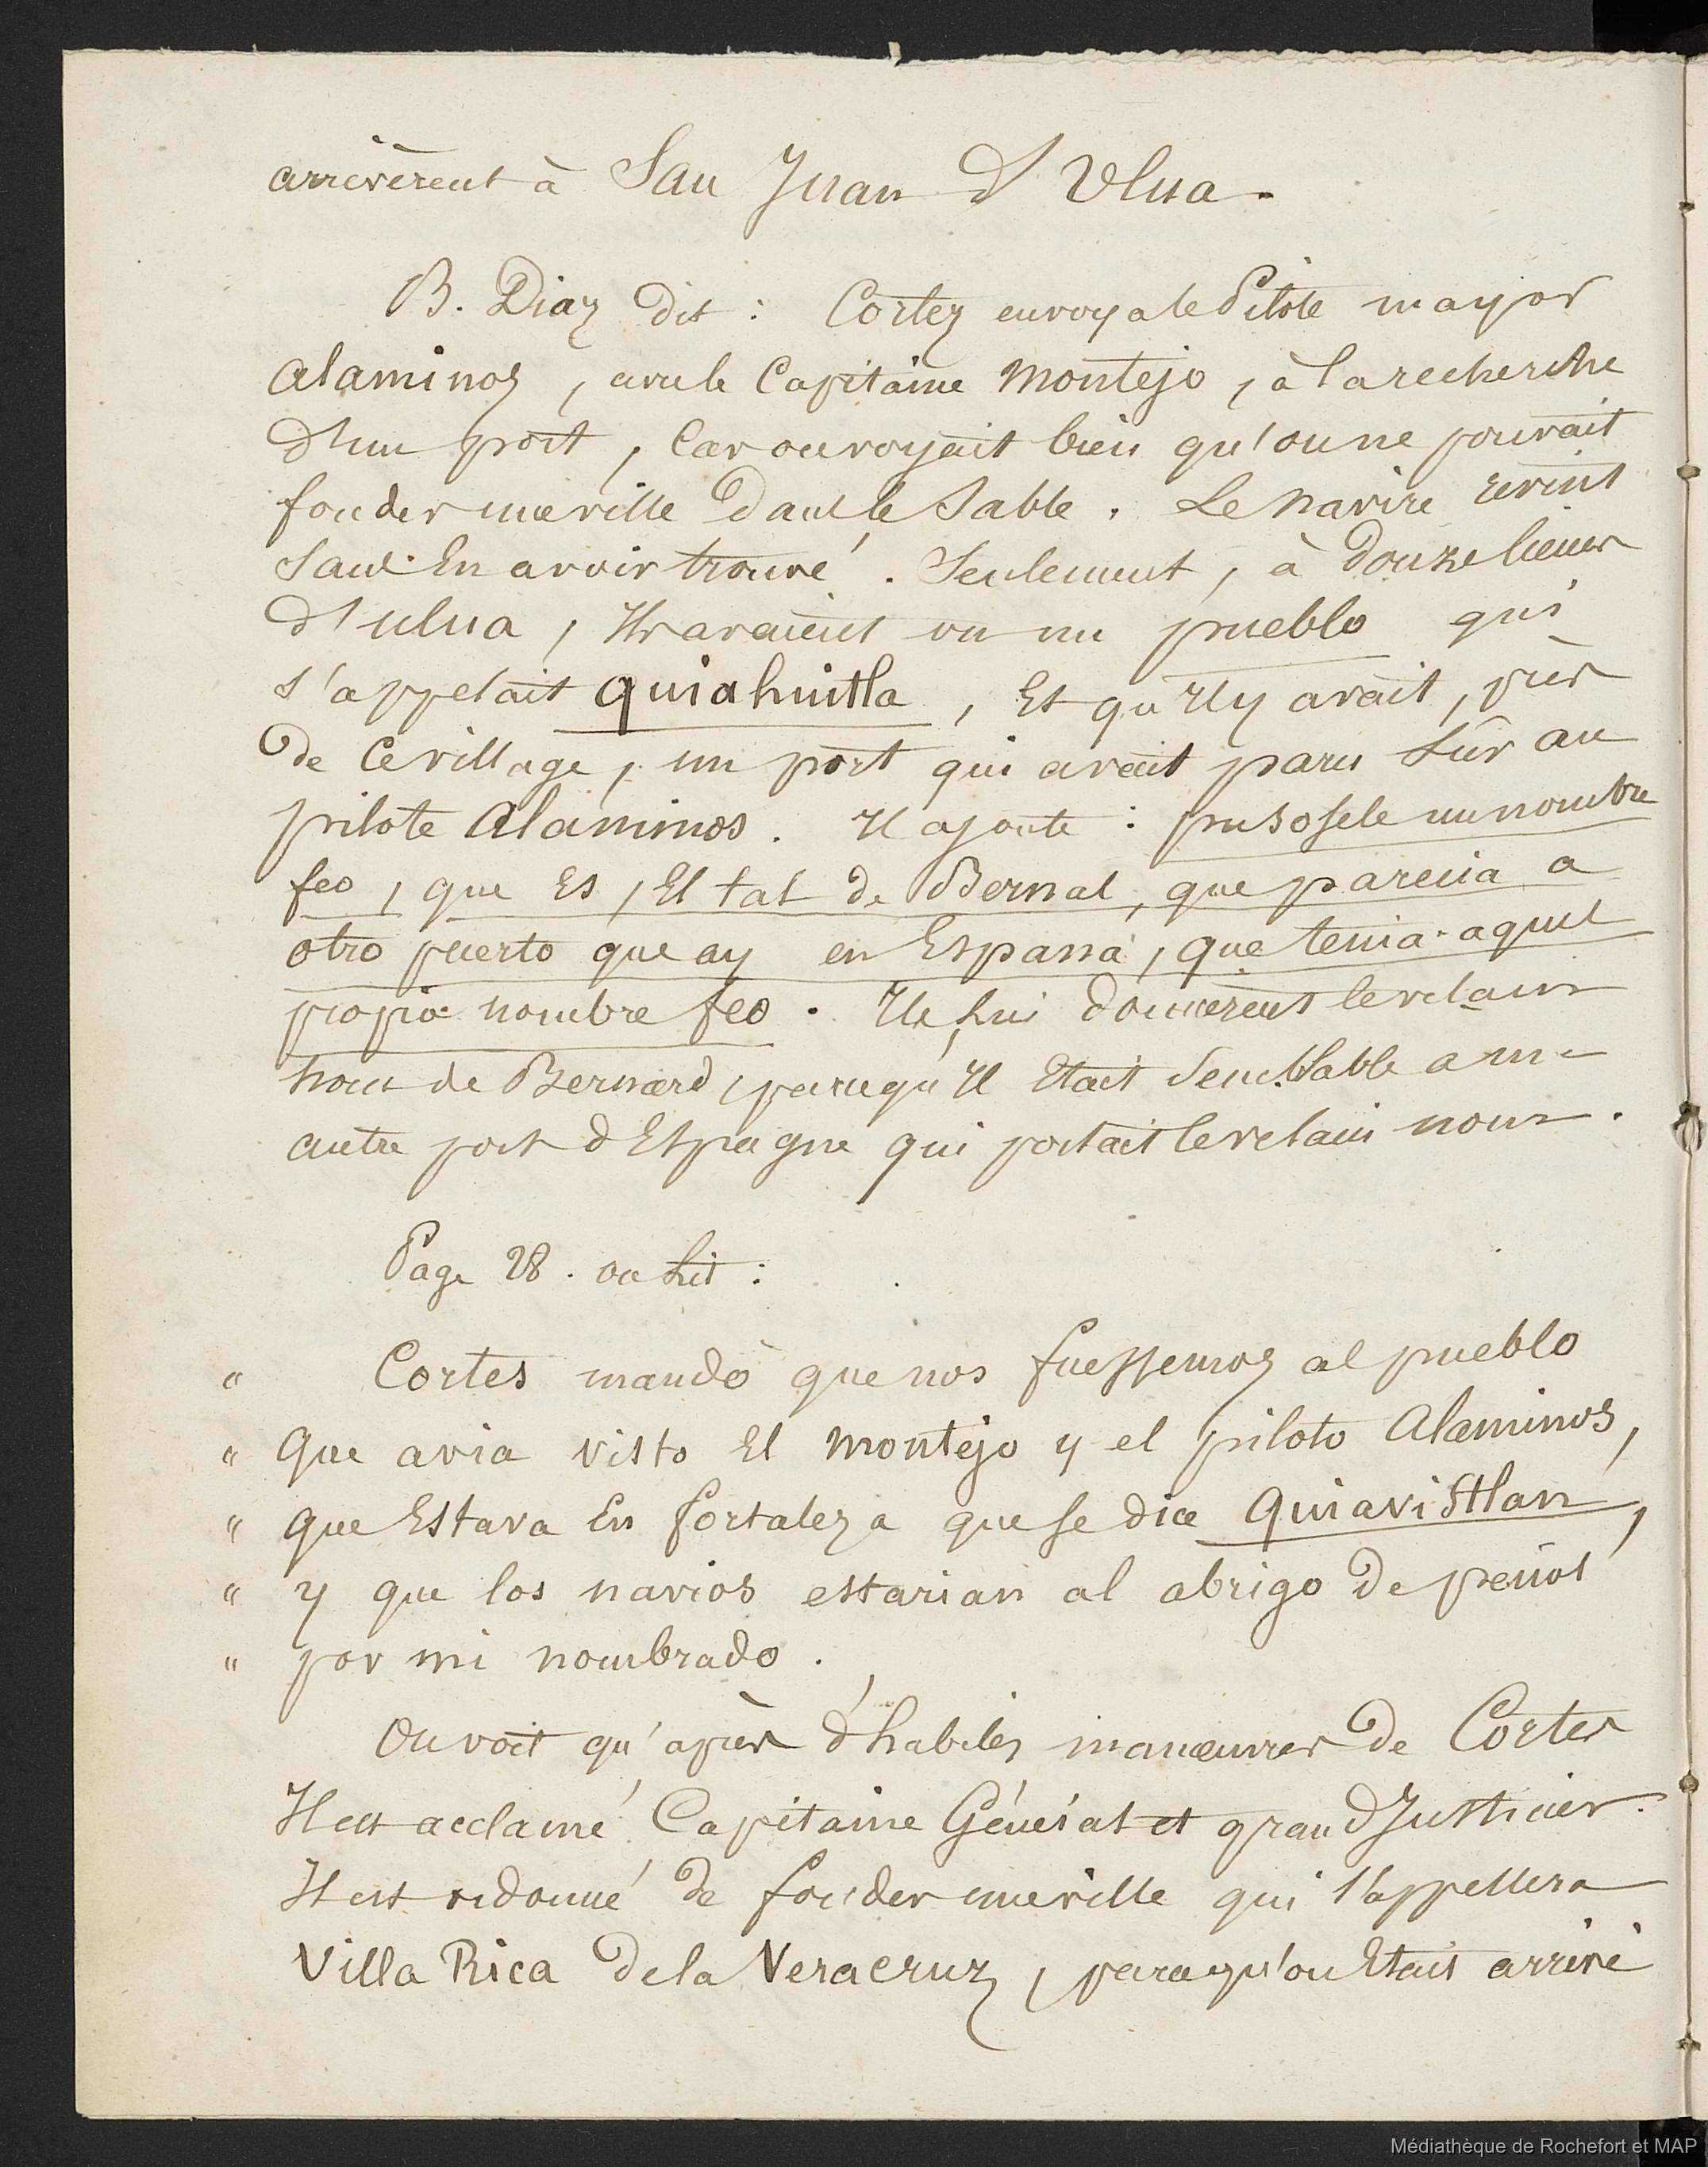 arrivèrent à San Juan d'Ulua.
B. Diaz dit : Cortez envoya le Pilote mayor
Alaminos, avec le Capitaine Montejo, à la recherche
d'un port, Car on voyait bien qu'on ne pouvait
fonder une ville dans le sable. Le navire revint
sans En avoir trouvé. Seulement, à douze lieues
d'ulua, Ils avaient vu un pueblo qui
s'appelait quiahuitla, Et qu'Il y avait, près
de ce village, un port qui avait paru sûr au
pilote Alaminos. Il ajoute : pusosele un nombre
feo, que Es, El tal de Bernal, que parecia a
otro puerto que ay en España, que tenia aquel
propio nombre feo. Ils lui donnèrent le vilain
nom de Bernard, parcequ'Il Etait semblable a un
autre port d'Espagne qui portait le vilain nom.
Page 28. on lit :
" Cortes mandò que nos fuessemoz al pueblo
" Que avia visto El Montejo y el piloto Alaminos,
" que Estava En fortaleza que se dice Quiavistlan,
" y que los navios estarian al abrigo de peñol
" por mi nombrado.
On voit qu'après d'habiles manœuvres de Cortes
Il est acclamé Capitaine Général et grand Justicier.
Il est ordonné de fonder une ville qui s'appellera
Villa Rica de la Veracruz, parcequ'on Etait arrivé
Médiathèque de Rochefort et MAP